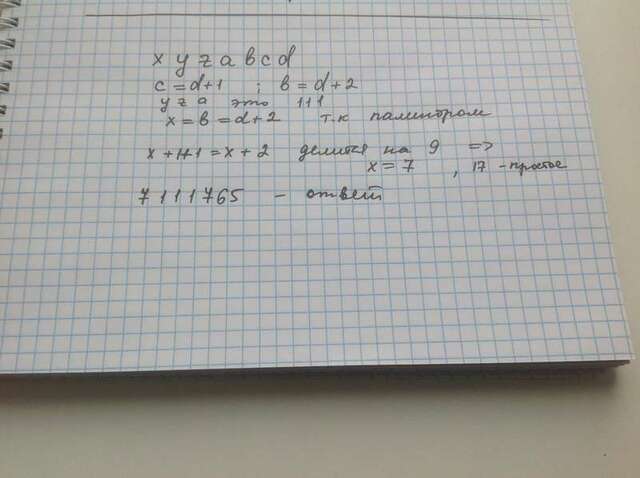 x y z a b c d
c = d+1 ; b = d+2
y z a это 111
x = b = d+2 т.к палиндром
x+1+1 = x+2 делится на 9 =>
x = 7 , 17 - простое
7111765 - ответ